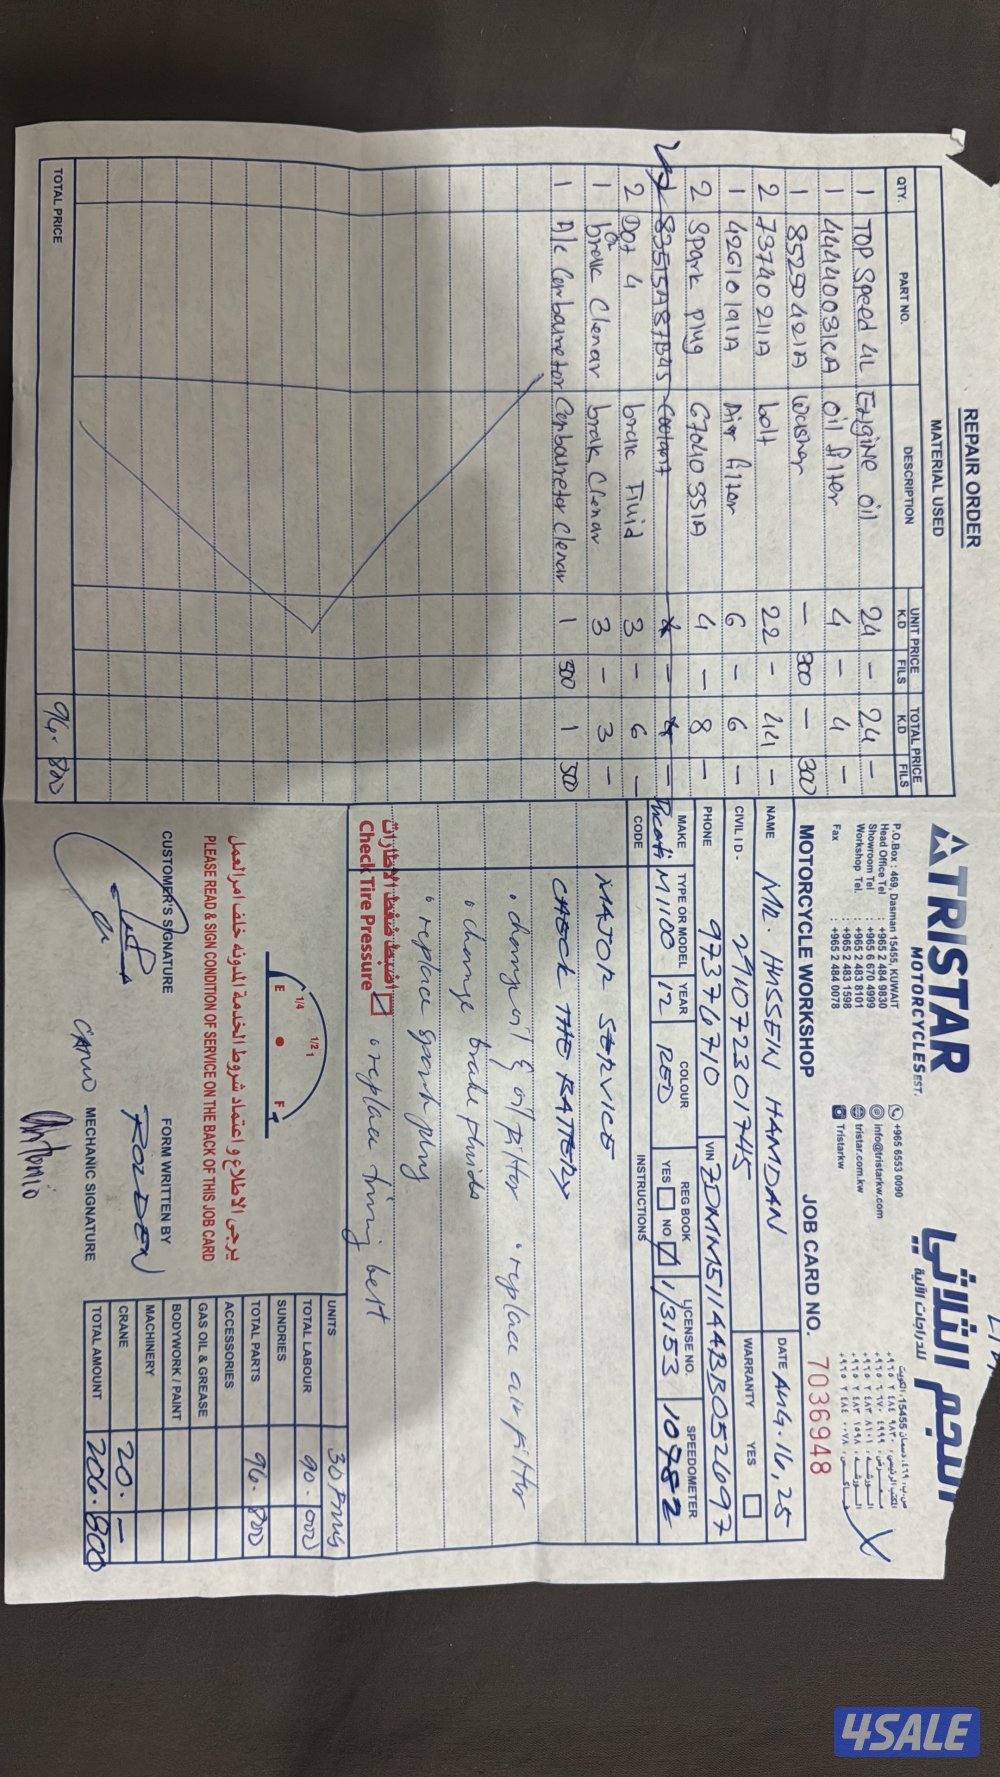 TRISTAR
MOTORCYCLES EST.
النجم الثلاثي
للدراجات الآلية
P.O.Box : 469, Dasman 15455, KUWAIT
Head Office Tel : +965 2 484 9830
Showroom Tel : +965 6 670 4999
Workshop Tel. : +965 2 483 8101
+965 2 483 1598
Fax : +965 2 484 0078
+965 6553 0090
info@tristarkw.com
tristar.com.kw
Tristarkw
MOTORCYCLE WORKSHOP
JOB CARD NO. 7036948
NAME MR. HUSSEN HAMDAN
DATE AUG. 16, 25
CIVIL ID- 291072301745
WARRANTY YES
PHONE 97376710
VIN ZDMM511AABB052697
MAKE TYPE OR MODEL YEAR COLOUR REG BOOK LICENSE NO. SPEEDOMETER
Ducati M1100 12 RED YES NO 1/3153 10982
CODE INSTRUCTIONS
MAJOR SERVICE
CHECK THE BATTERY
• change oil & oil filter • replace air filter
• change brake fluids
• replace spark plug
• replace timing belt
اضبط ضغط الإطارات
Check Tire Pressure
E 1/4 1/2 1 F
يرجى الاطلاع و اعتماد شروط الخدمة المدونه خلف امر العمل
PLEASE READ & SIGN CONDITION OF SERVICE ON THE BACK OF THIS JOB CARD
CUSTOMER'S SIGNATURE
FORM WRITTEN BY
ROLDEN
MECHANIC SIGNATURE
Antonio
UNITS 30
TOTAL LABOUR 90.000
SUNDRIES
TOTAL PARTS 96.800
ACCESSORIES
GAS OIL & GREASE
BODYWORK / PAINT
MACHINERY
CRANE 20.-
TOTAL AMOUNT 206.800
REPAIR ORDER
MATERIAL USED
QTY. PART NO. DESCRIPTION UNIT PRICE K.D FILS TOTAL PRICE K.D FILS
1 TOP Speed 4L Engine oil 24 - 24 -
1 44440031CA oil filter 4 - 4 -
1 85250421A washer - 300 - 300
2 73740211A bolt 22 - 44 -
1 42610191A Aier filter 6 - 6 -
2 Spark Plug 67040351A 4 - 8 -
Coolant
2 Dot 4 brake Fluid 3 - 6 -
1 brak Clenar brak Clenar 3 - 3 -
1 A/c Conbauretor Conbauretor Clenar 1 500 1 500
TOTAL PRICE 96.800
4SALE